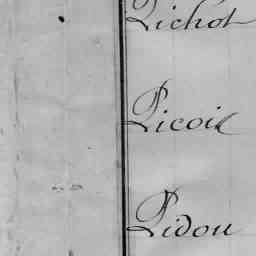 Pichot
Picois
Pidou